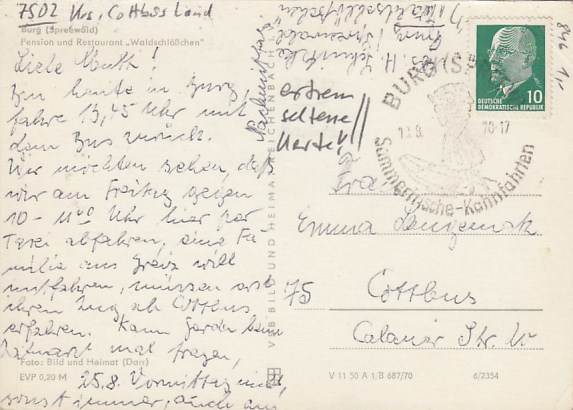 7502 Krs. Cottbus Land
Burg (Spreewald)
Pension und Restaurant „Waldschlößchen"
Liebe Mutti!
Bin heute in Burg,
fahre 13,45 Uhr mit
dem Bus zurück.
Wir möchten sehen, daß
wir am Freitag gegen
10 - 11 00 Uhr hier per
Taxi abfahren, eine Fa-
milie aus Greiz will
mitfahren, müssen erst
ihren Zug ab Cottbus
erfahren. Kann
mal fragen,
25.8. Vormittag
sonst immer, auch am
Foto: Bild und Heimat (Darr)
EVP 0,20 M
VEB BILD UND HEIMAT REICHENBACH
extrem
seltene
Karte!
H.
Burg / Spreewald
DEUTSCHE
DEMOKRATISCHE REPUBLIK
10
BURG (SP
10-17
Sommerfrische-Kahnfahrten
Frau
Emma
75 Cottbus
Calauer Str.
V 11 50 A 1/B 687/70
6/2354